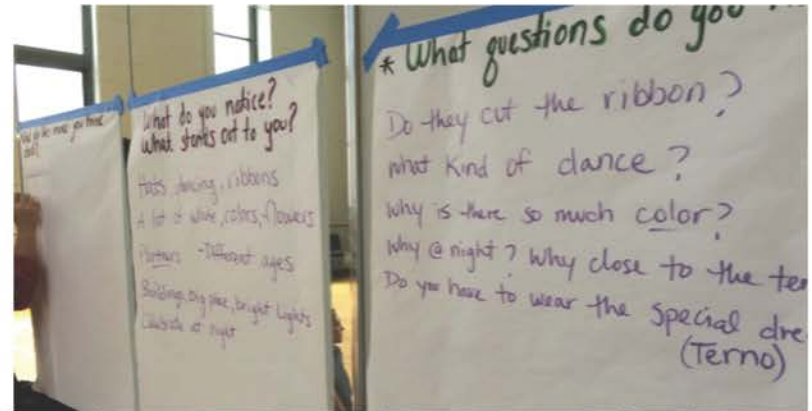 you think
What do you notice?
What stands out to you?
Hats, dancing, ribbons
A lot of white, colors, flowers
Partners - Different ages
Buildings, big pine, bright lights
Celebrate at night
* What questions do you
Do they cut the ribbon?
What kind of dance?
Why is there so much color?
Why @ night? Why close to the
Do you have to wear the special
(Terno)